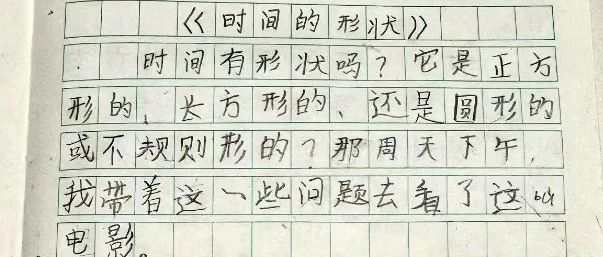 《时间的形状》
时间有形状吗？它是正方
形的、长方形的、还是圆形的
或不规则形的？那周天下午，
我带着这一些问题去看了这
电影。